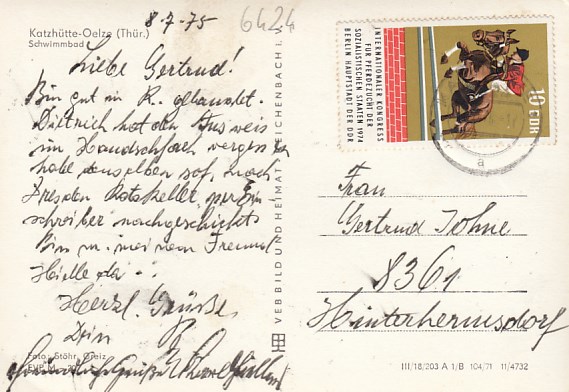 8.7.75
6424
Katzhütte-Oelze (Thür.)
Schwimmbad
Liebe Gertrud!
Bin gut in R. gelandet.
Dietrich hat den Ausweis
im Handschfach vergessen
habe denselben sof. nach
Dresden Ratskeller, per Ein
schreiber nachgeschickt
Bin m. meinem Freund
da ..
Herzl. Grüße
Dein
Foto: Stöhr, Greiz
EVP M
VEB BILD UND HEIMAT REICHENBACH i.
INTERNATIONALER KONGRESS
FÜR PFERDEZUCHT DER
SOZIALISTISCHEN STAATEN 1974
BERLIN HAUPTSTADT DER DDR
10 DDR
a
Frau
Gertrud Johne
8361
Hinterhermsdorf
III/18/203 A 1/B 104/71 11/4732